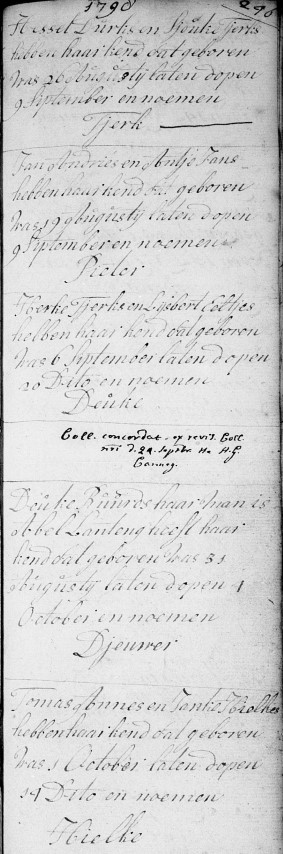 1798 298
Hessel Durks en Sjoukje Tjerks
hebben haar kend dat geboren
Was 26 Augusty laten dopen
9 September en noemen
Tjerk
Jan Andries en Antje Jans
hebben haar kend dat geboren
Was 19 Augusty laten dopen
9 September en noemen
Pieter
Tjerks en Lijsbert Eeltjes
hebben haar kend dat geboren
Was 6 September laten dopen
20 Dito en noemen
Douke
Coll. concordat
d. 24. Septbr
Douke Ruurds haar man is
Obbel Lanteng heeft haar
kend dat geboren Was 31
Augusty laten dopen 4
October en noemen
Djeuwer
Tomas Annes en Janke Hielkes
hebben haar kend dat geboren
Was 1 October laten dopen
14 Dito en noemen
Hielke